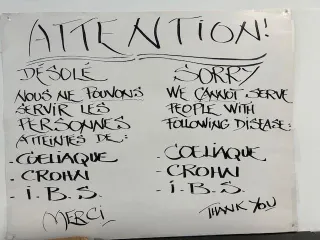 ATTENTION!
DÉSOLÉ
NOUS NE POUVONS
SERVIR LES
PERSONNES
ATTEINTES DE:
- COELIAQUE
- CROHN
- I.B.S.
MERCI
SORRY
WE CANNOT SERVE
PEOPLE WITH
FOLLOWING DISEASE:
- COELIAQUE
- CROHN
- I.B.S.
THANK YOU